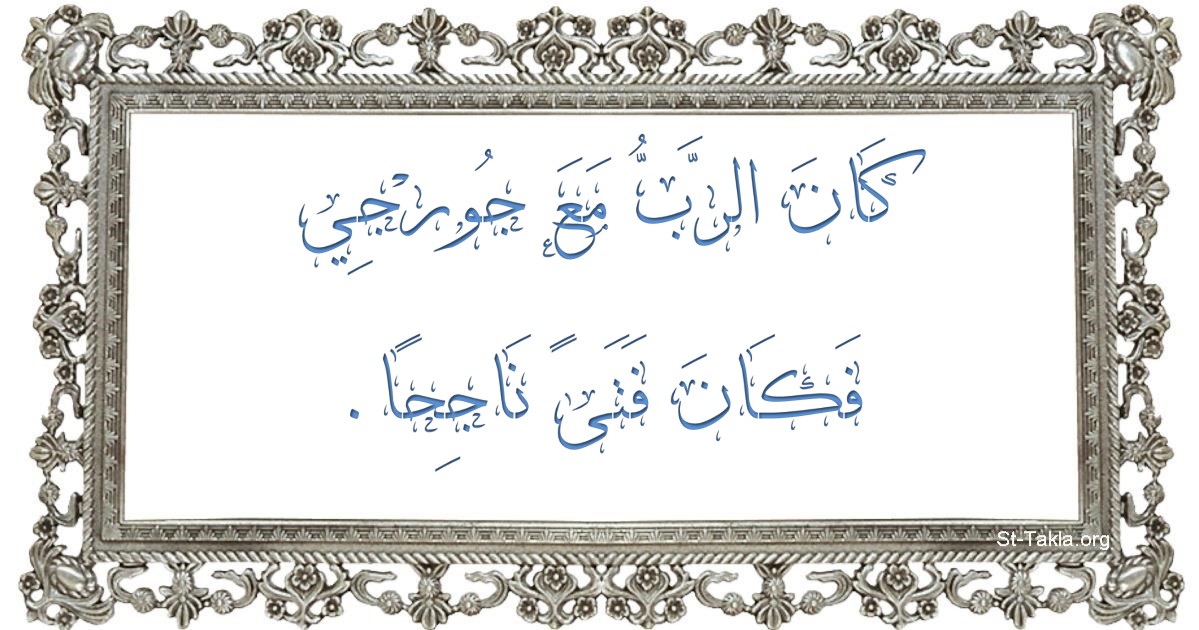 كَانَ الرَّبُّ مَعَ جُورْجِي
فَكَانَ فَتَىً نَاجِحًا.
St-Takla.org